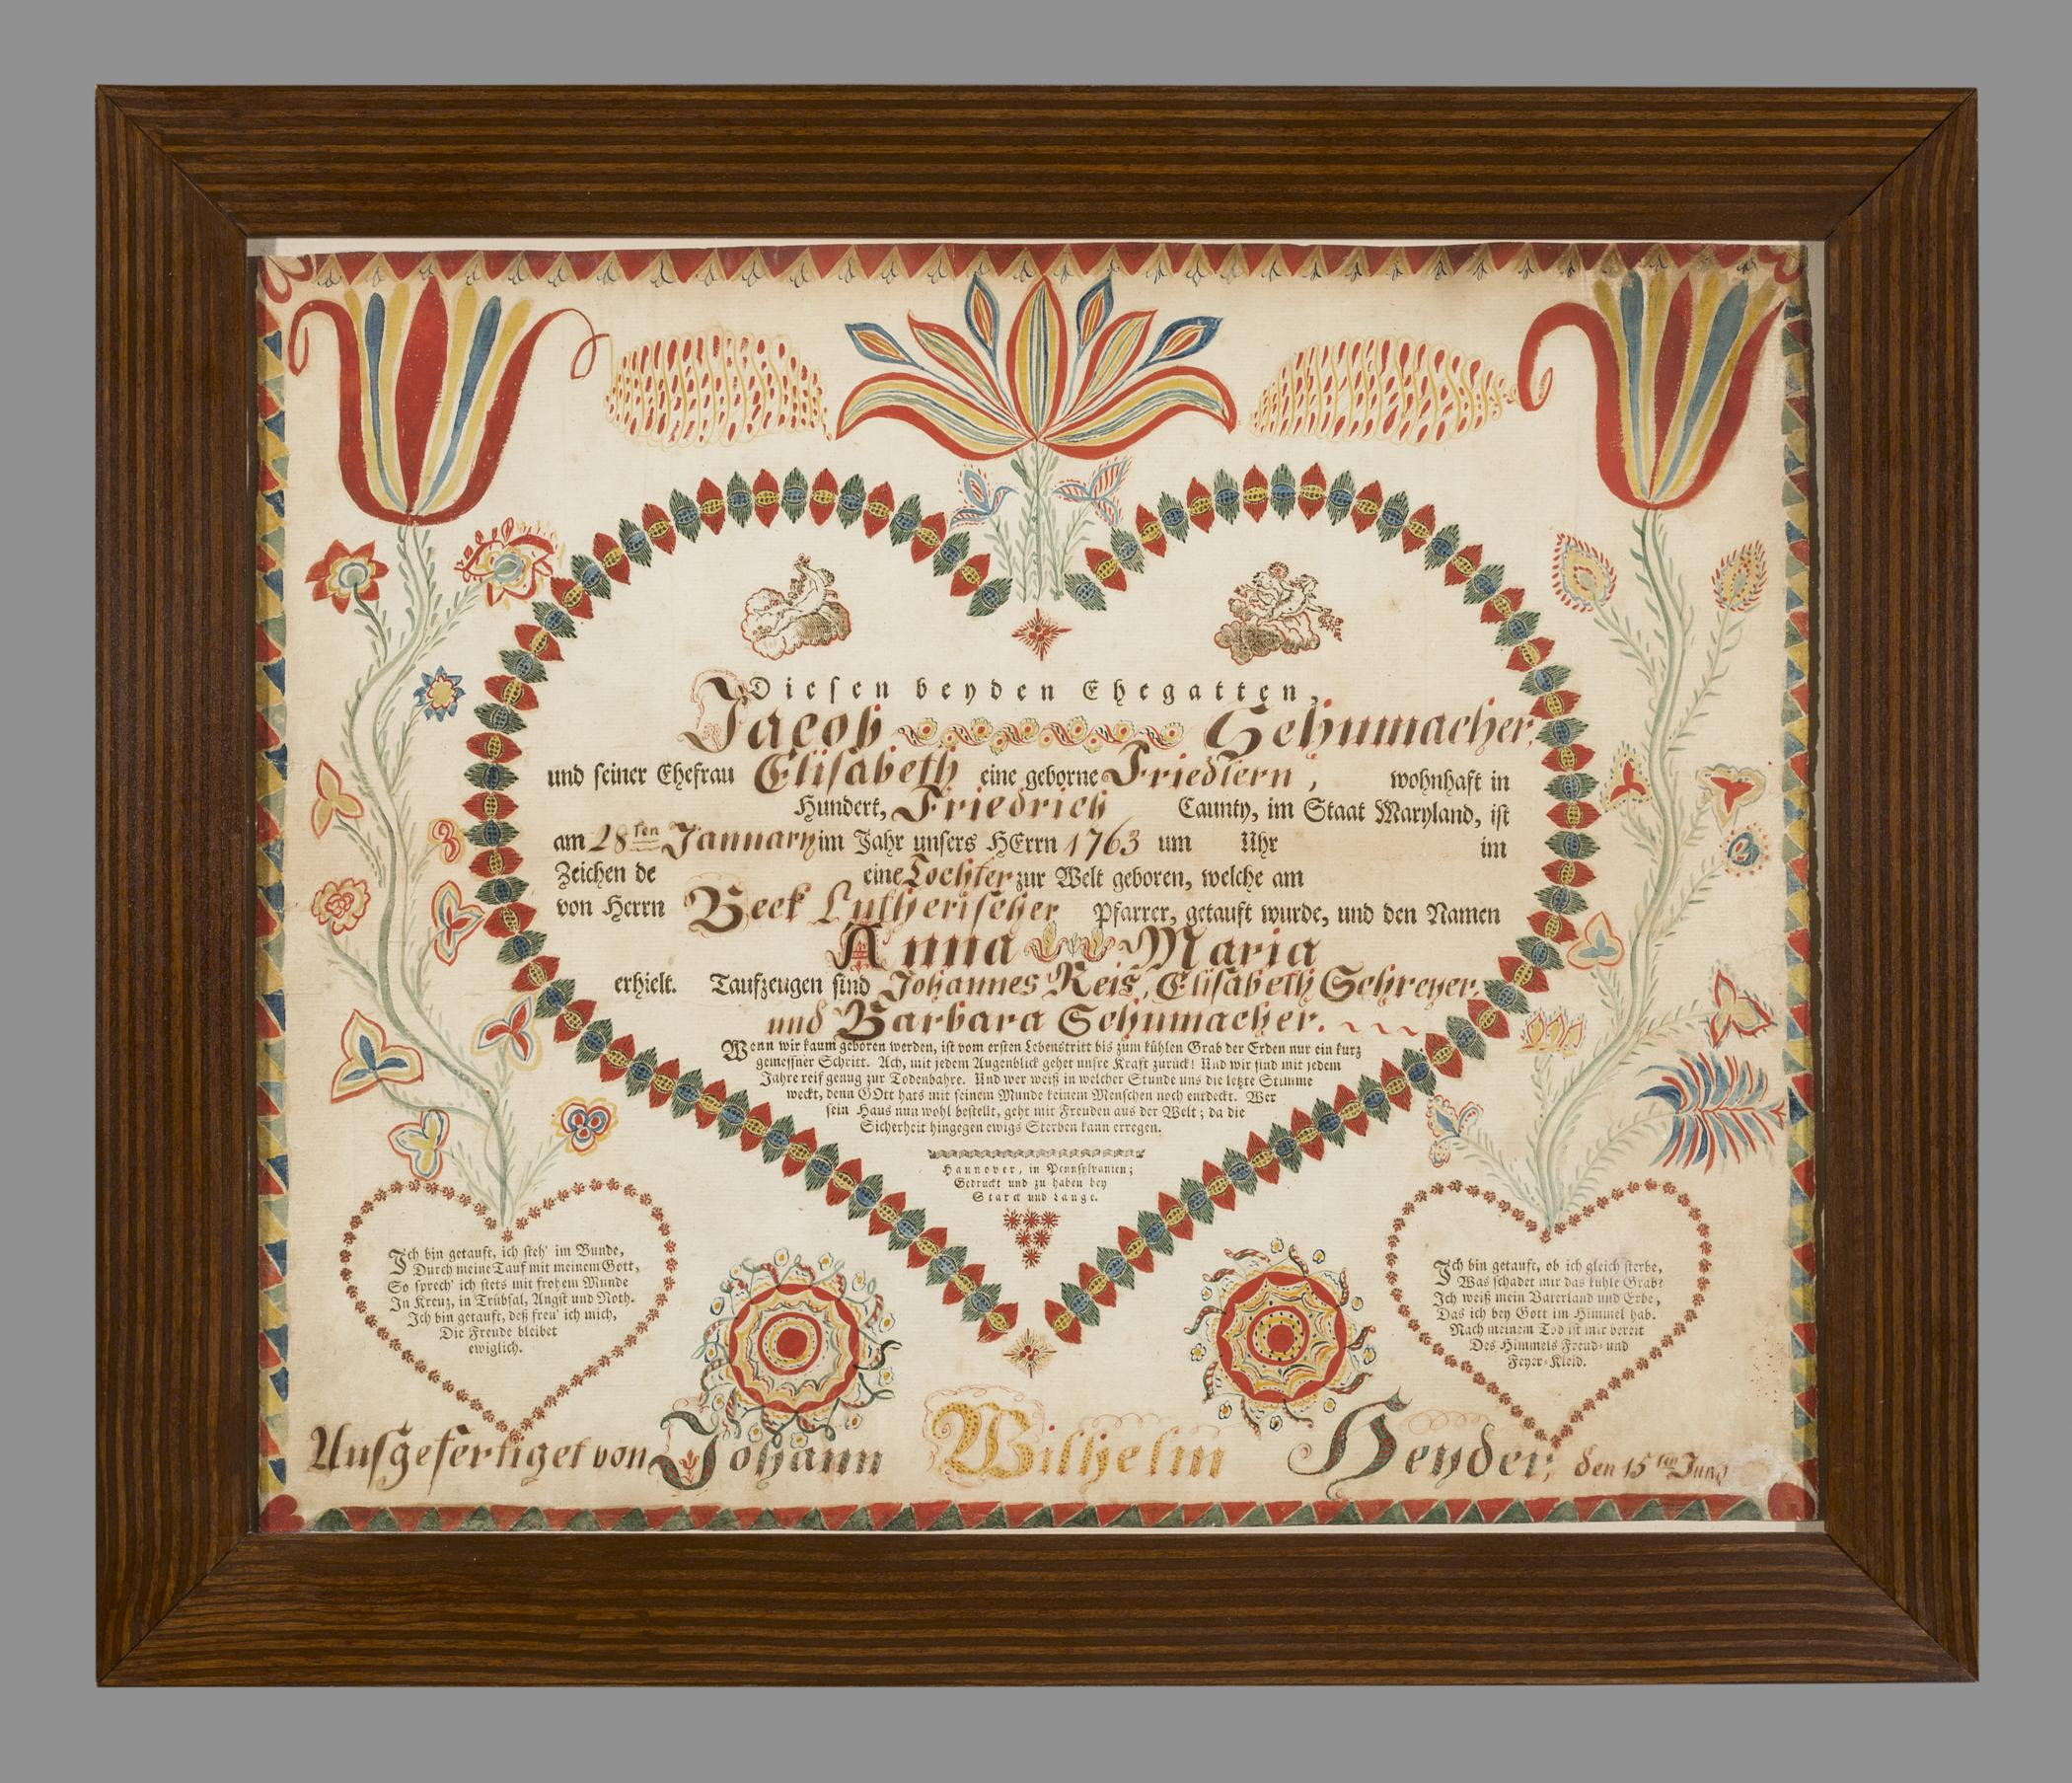 Diesen beyden Ehegatten,
Jacob Schumacher,
und seiner Ehefrau Elisabeth eine geborne Friedlern, wohnhaft in
Hundert, Friedrich Caunty, im Staat Maryland, ist
am 28ten January im Jahr unsers HErrn 1763 um Uhr im
Zeichen de eine Tochter zur Welt geboren, welche am
von Herrn Beck Lutherischer Pfarrer, getauft wurde, und den Namen
Anna Maria
erhielt. Taufzeugen sind Johannes Reis, Elisabeth Schreyer,
und Barbara Schumacher.
Wenn wir kaum geboren werden, ist vom ersten Lebenstritt bis zum kühlen Grab der Erden nur ein kurz
gemessner Schritt. Ach, mit jedem Augenblick gehet unsre Kraft zurück! Und wir sind mit jedem
Jahre reif genug zur Todenbahre. Und wer weiß in welcher Stunde uns die letzte Stimme
weckt, denn GOtt hats mit seinem Munde keinem Menschen noch entdeckt. Wer
sein Haus nun wohl bestellt, geht mit Freuden aus der Welt; da die
Sicherheit hingegen ewigs Sterben kann erregen.
Hannover, in Pennsylvanien;
Gedruckt und zu haben bey
Starck und Lange.
Ich bin getauft, ich steh' im Bunde,
Durch meine Tauf mit meinem Gott,
So sprech' ich stets mit frohem Munde
In Kreuz, in Trübsal, Angst und Noth.
Ich bin getauft, deß freu' ich mich,
Die Freude bleibet
ewiglich.
Ich bin getauft, ob ich gleich sterbe,
Was schadet mir das kühle Grab?
Ich weiß mein Vaterland und Erbe,
Das ich bey Gott im Himmel hab.
Nach meinem Tod ist mir bereit
Des Himmels Freud- und
Feyer-Kleid.
Ausgefertiget von Johann Wilhelm Heyder, den 15ten Juny